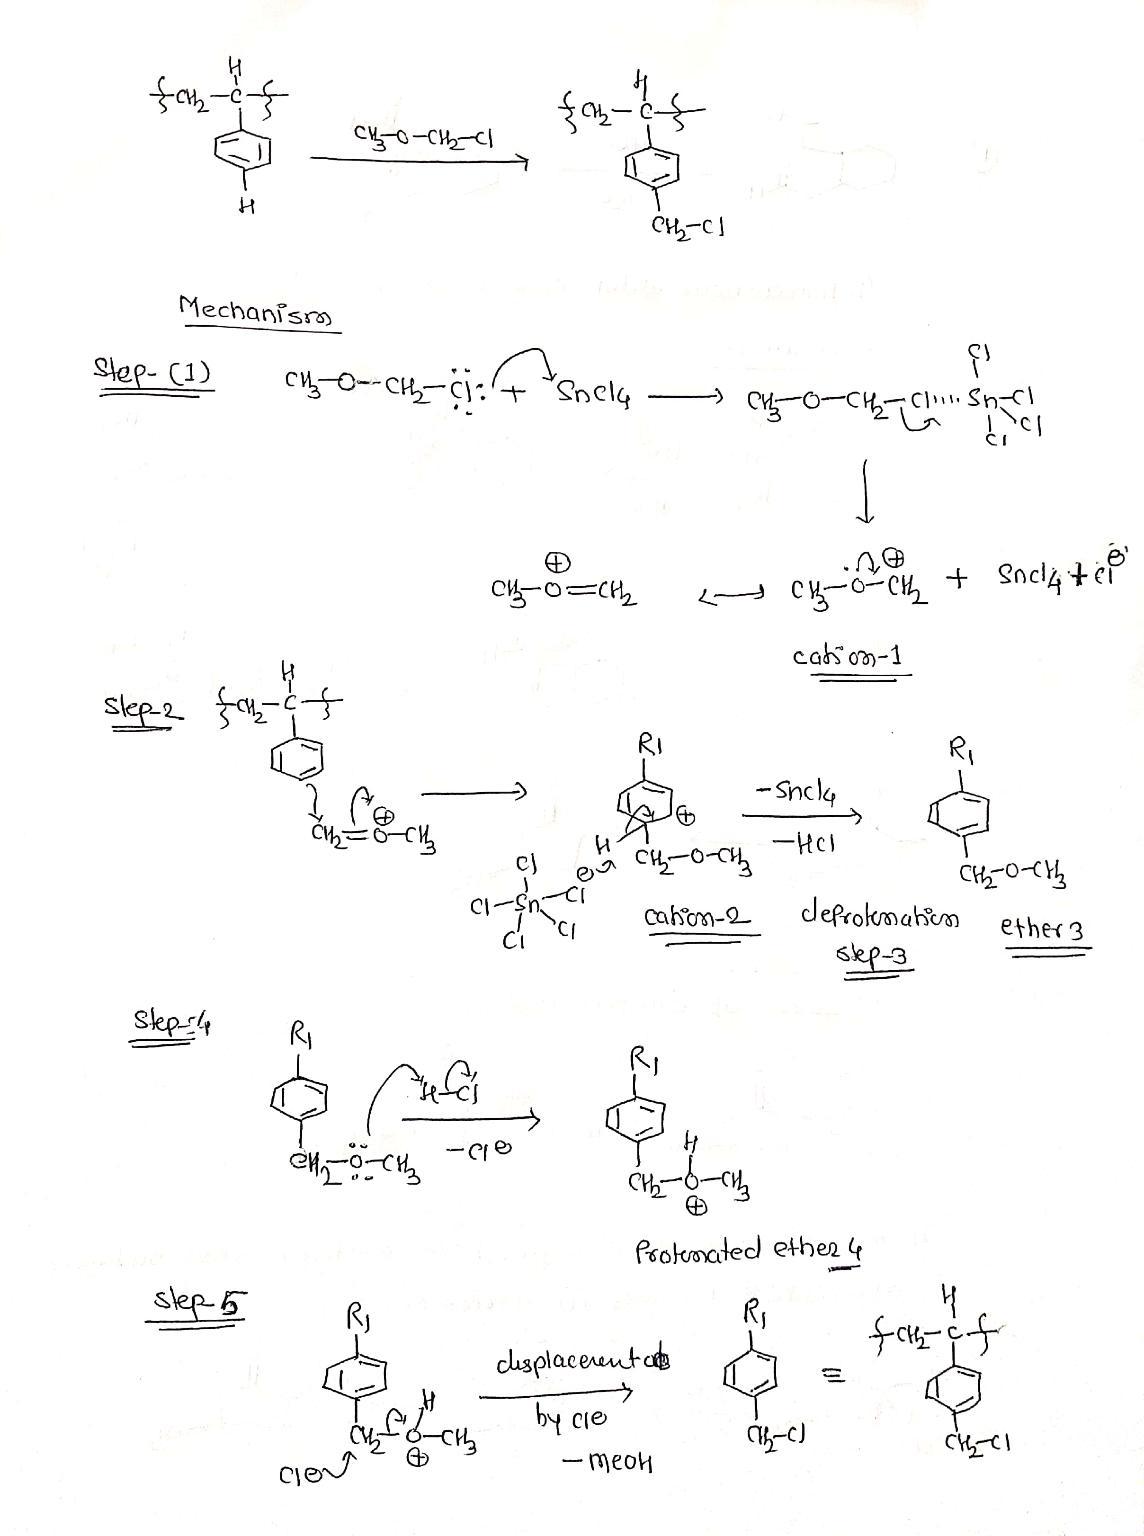 H
CH2-C
CH3-O-CH2-Cl
H
H
CH2-C
CH2-Cl
Mechanism
Step-(1)
CH3-O-CH2-Cl: + SnCl4
CH3-O-CH2-Cl Sn-Cl
Cl
Cl
Cl
CH3-O=CH2
⊕
CH3-O-CH2 + SnCl4 + Cl⊖
⊕
cation-1
Step-2
H
CH2-C
CH2=O-CH3
⊕
R1
⊕
H
CH2-O-CH3
Cl
Cl-Sn-Cl
⊖
Cl
Cl
cation-2
-SnCl4
-HCl
deprotonation
step-3
R1
CH2-O-CH3
ether 3
Step-4
R1
CH2-O-CH3
H-Cl
-Cl⊖
R1
H
CH2-O-CH3
⊕
Protonated ether 4
Step 5
R1
H
CH2-O-CH3
⊕
Cl⊖
displacement
by Cl⊖
-MeOH
R1
CH2-Cl
≡
H
CH2-C
CH2-Cl